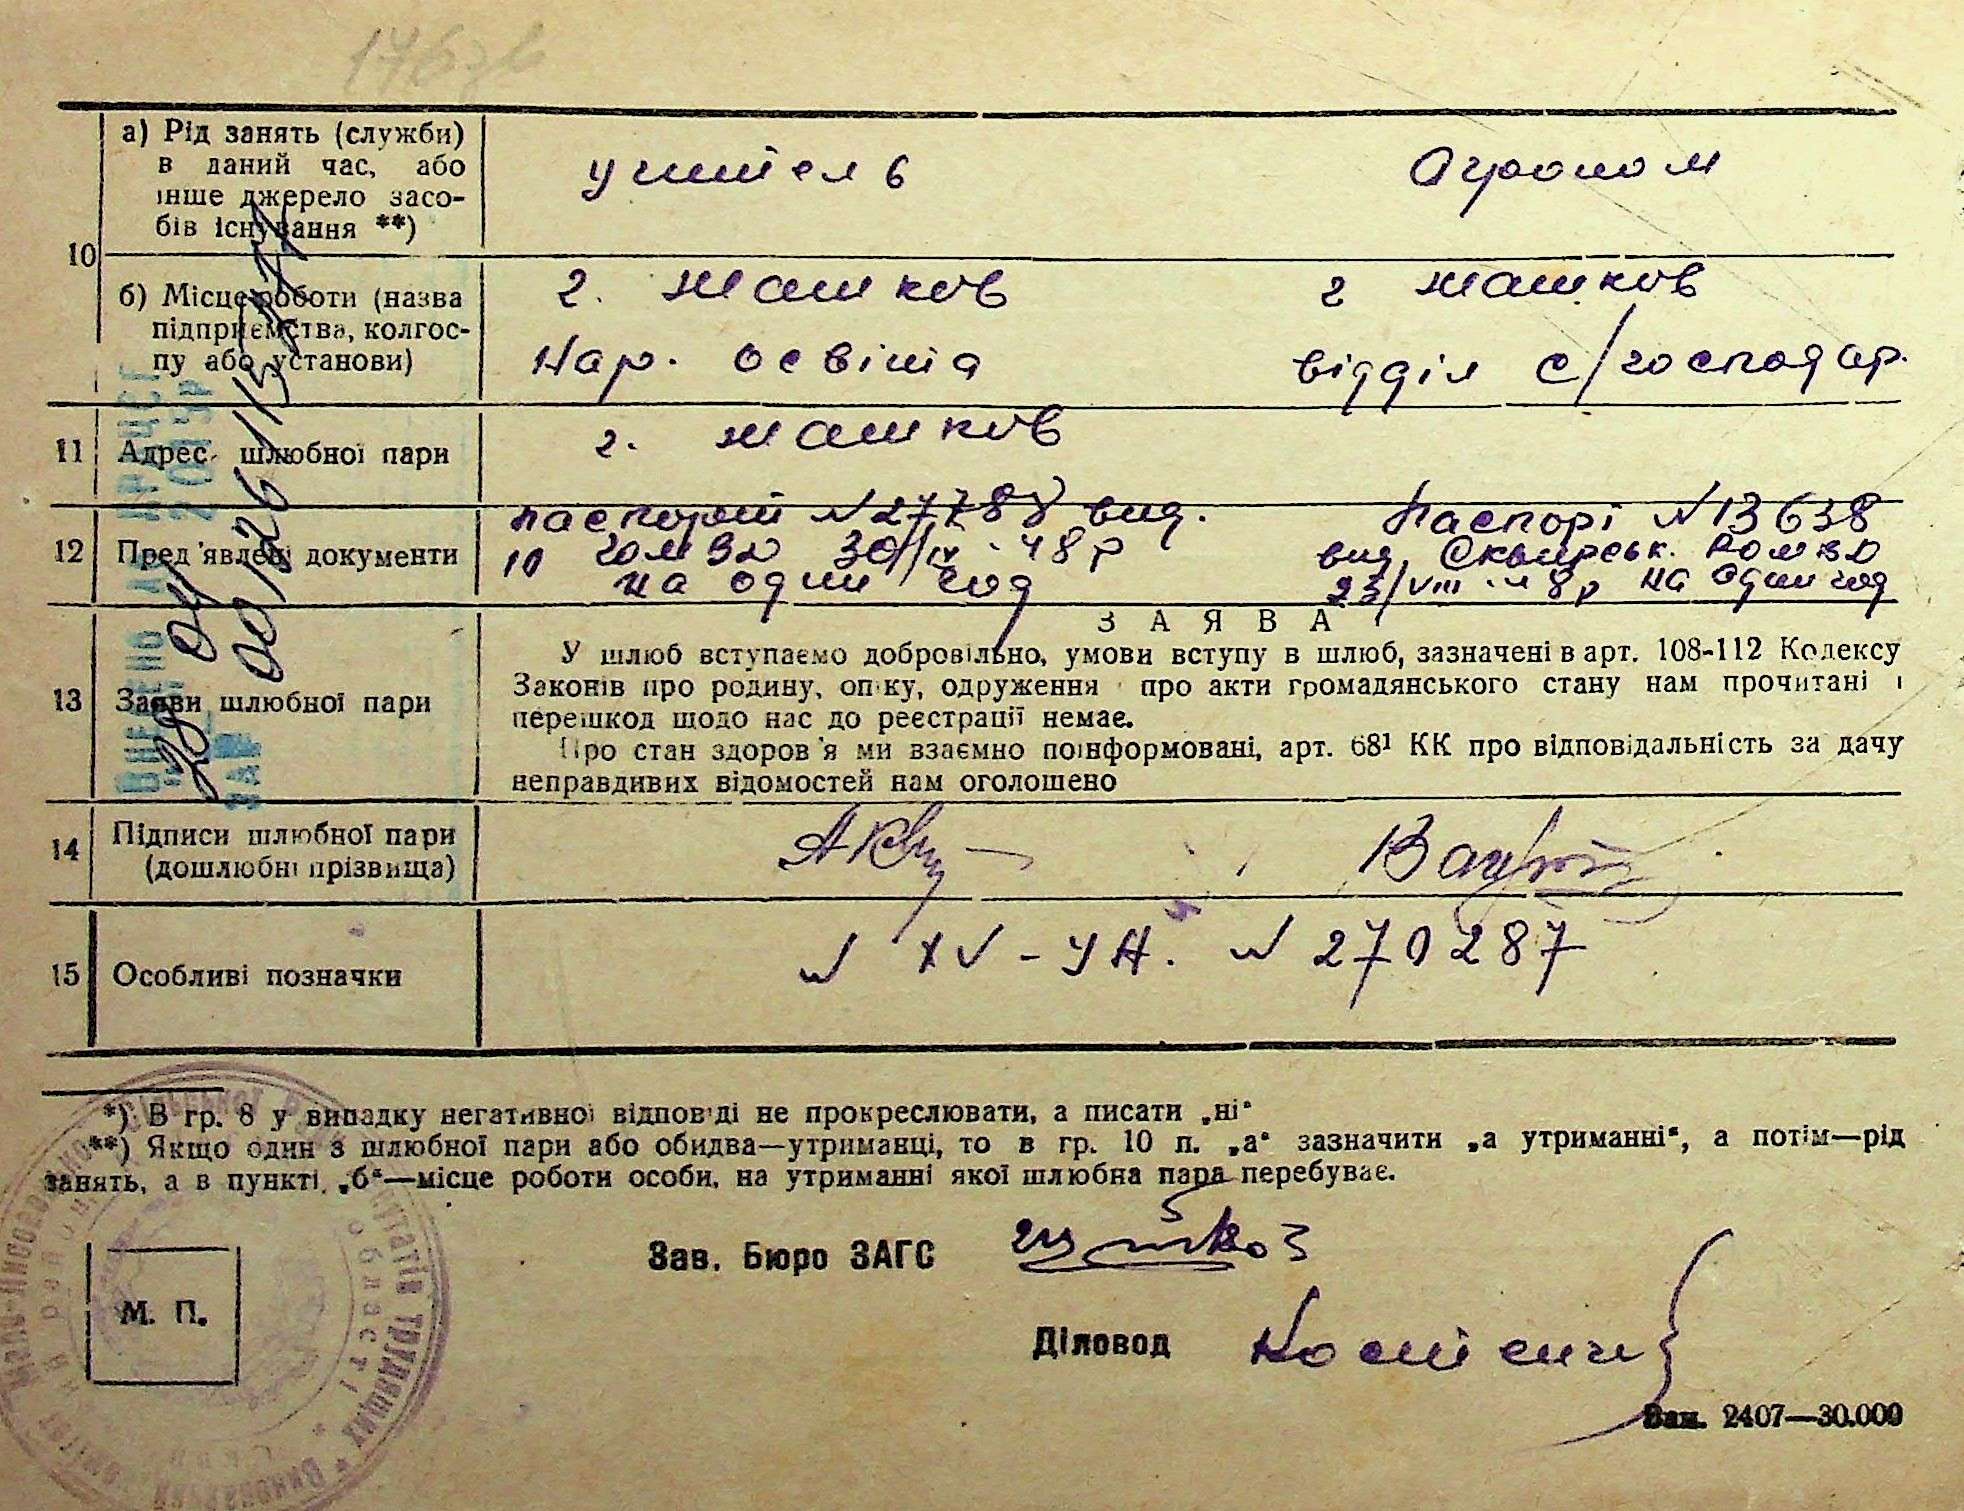 а) Рід занять (служби)
в даний час, або
інше джерело засо-
бів існування **)
учитель
Агроном
10
б) Місце роботи (назва
підприємства, колгос-
пу або установи)
г. Жашков
Нар. освіта
г Жашков
відділ с/господар.
11
Адрес шлюбної пари
г. Жашков
12
Пред'явлені документи
паспорт №27788 вид.
30/IX-48р
на один год
Паспорт №13638
вид. Сквирськ. РОМВД
23/VIII-48р на один год
13
Заяви шлюбної пари
ЗАЯВА
У шлюб вступаємо добровільно, умови вступу в шлюб, зазначені в арт. 108-112 Кодексу
Законів про родину, опіку, одруження і про акти громадянського стану нам прочитані і
перешкод щодо нас до реєстрації немає.
Про стан здоров'я ми взаємно поінформовані, арт. 68¹ КК про відповідальність за дачу
неправдивих відомостей нам оголошено
14
Підписи шлюбної пари
(дошлюбні прізвища)
15
Особливі позначки
№ XV-УН. № 270287
*) В гр. 8 у випадку негативної відповіді не прокреслювати, а писати „ні“
**) Якщо один з шлюбної пари або обидва—утриманці, то в гр. 10 п. „а“ зазначити „а утриманні“, а потім—рід
занять, а в пункті „б“—місце роботи особи, на утриманні якої шлюбна пара перебуває.
Зав. Бюро ЗАГС
М. П.
Діловод
Зам. 2407—30.000